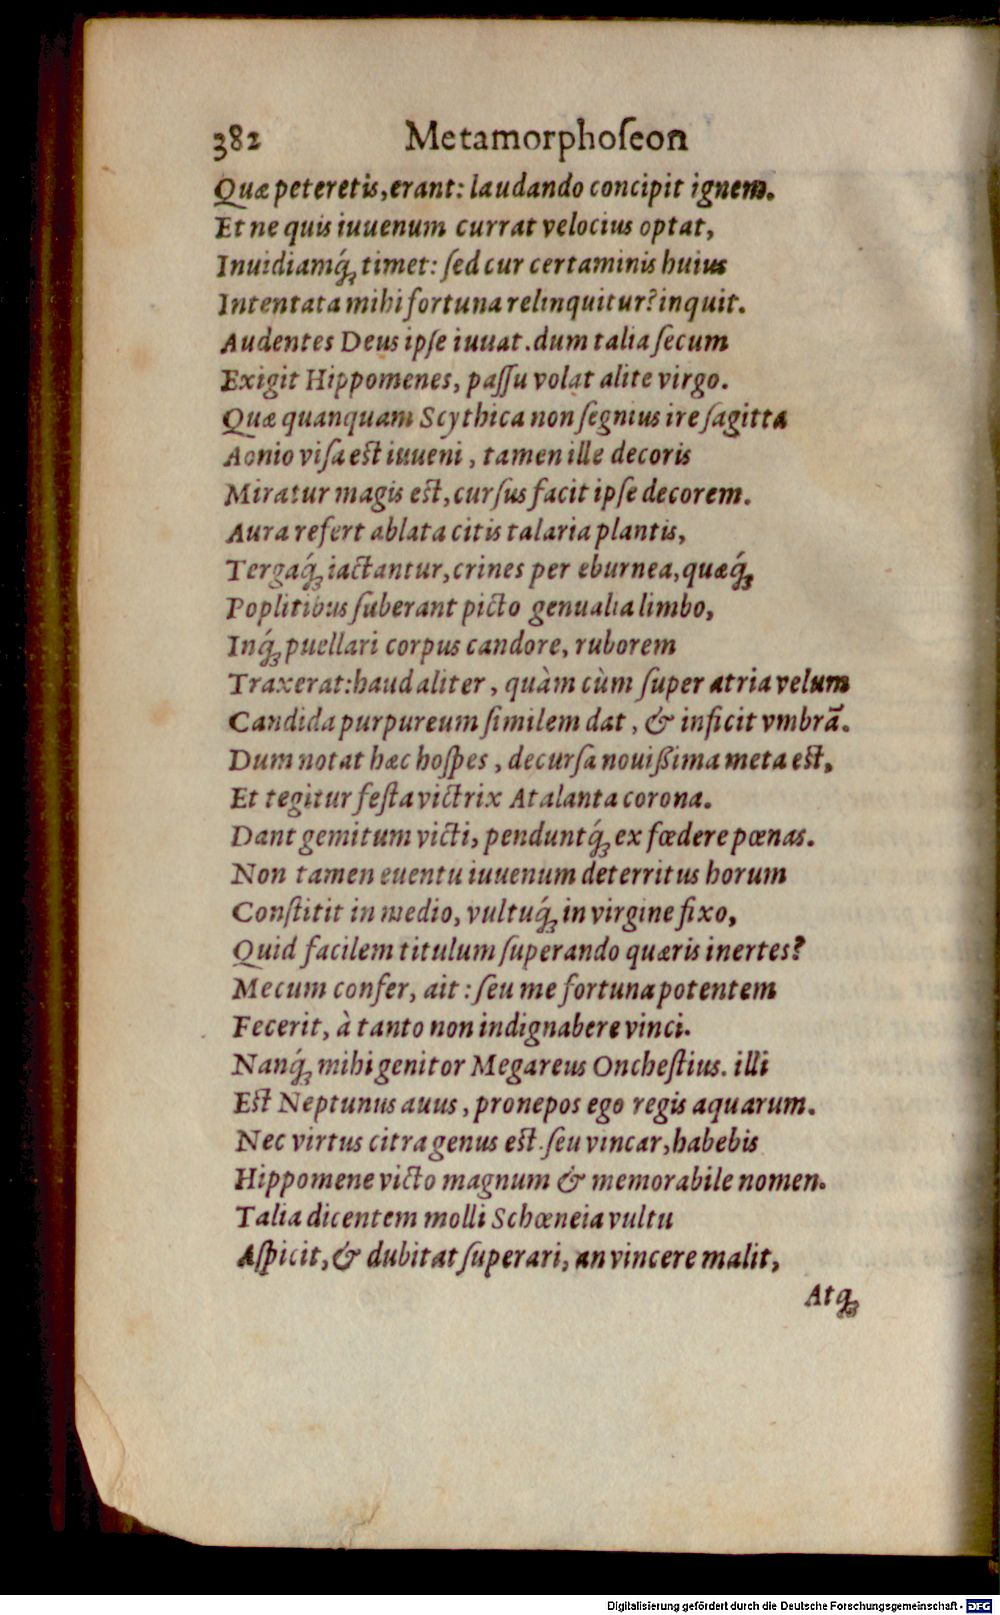 382 Metamorphoſeon
Quæ peteretis, erant: laudando concipit ignem.
Et ne quis iuuenum currat velocius optat,
Inuidiamq́ꝫ timet: ſed cur certaminis huius
Intentata mihi fortuna relinquitur? inquit.
Audentes Deus ipſe iuuat. dum talia ſecum
Exigit Hippomenes, paſſu volat alite virgo.
Quæ quanquam Scythica non ſegnius ire ſagitta
Aonio viſa eſt iuueni, tamen ille decoris
Miratur magis eſt, curſus facit ipſe decorem.
Aura refert ablata citis talaria plantis,
Tergaq́ꝫ iactantur, crines per eburnea, quæq́ꝫ
Poplitibus ſuberant picto genualia limbo,
Inq́ꝫ puellari corpus candore, ruborem
Traxerat: haud aliter, quàm cùm ſuper atria velum
Candida purpureum ſimilem dat, & inficit vmbrā.
Dum notat hæc hoſpes, decurſa nouißima meta eſt,
Et tegitur feſta victrix Atalanta corona.
Dant gemitum victi, penduntq́ꝫ ex fœdere pœnas.
Non tamen euentu iuuenum deterritus horum
Conſtitit in medio, vultuq́ꝫ in virgine fixo,
Quid facilem titulum ſuperando quæris inertes?
Mecum confer, ait: ſeu me fortuna potentem
Fecerit, à tanto non indignabere vinci.
Nanq́ꝫ mihi genitor Megareus Oncheſtius. illi
Eſt Neptunus auus, pronepos ego regis aquarum.
Nec virtus citra genus eſt. ſeu vincar, habebis
Hippomene victo magnum & memorabile nomen.
Talia dicentem molli Schœneia vultu
Aſpicit, & dubitat ſuperari, an vincere malit,
Atqꝫ
Digitalisierung gefördert durch die Deutsche Forschungsgemeinschaft - DFG